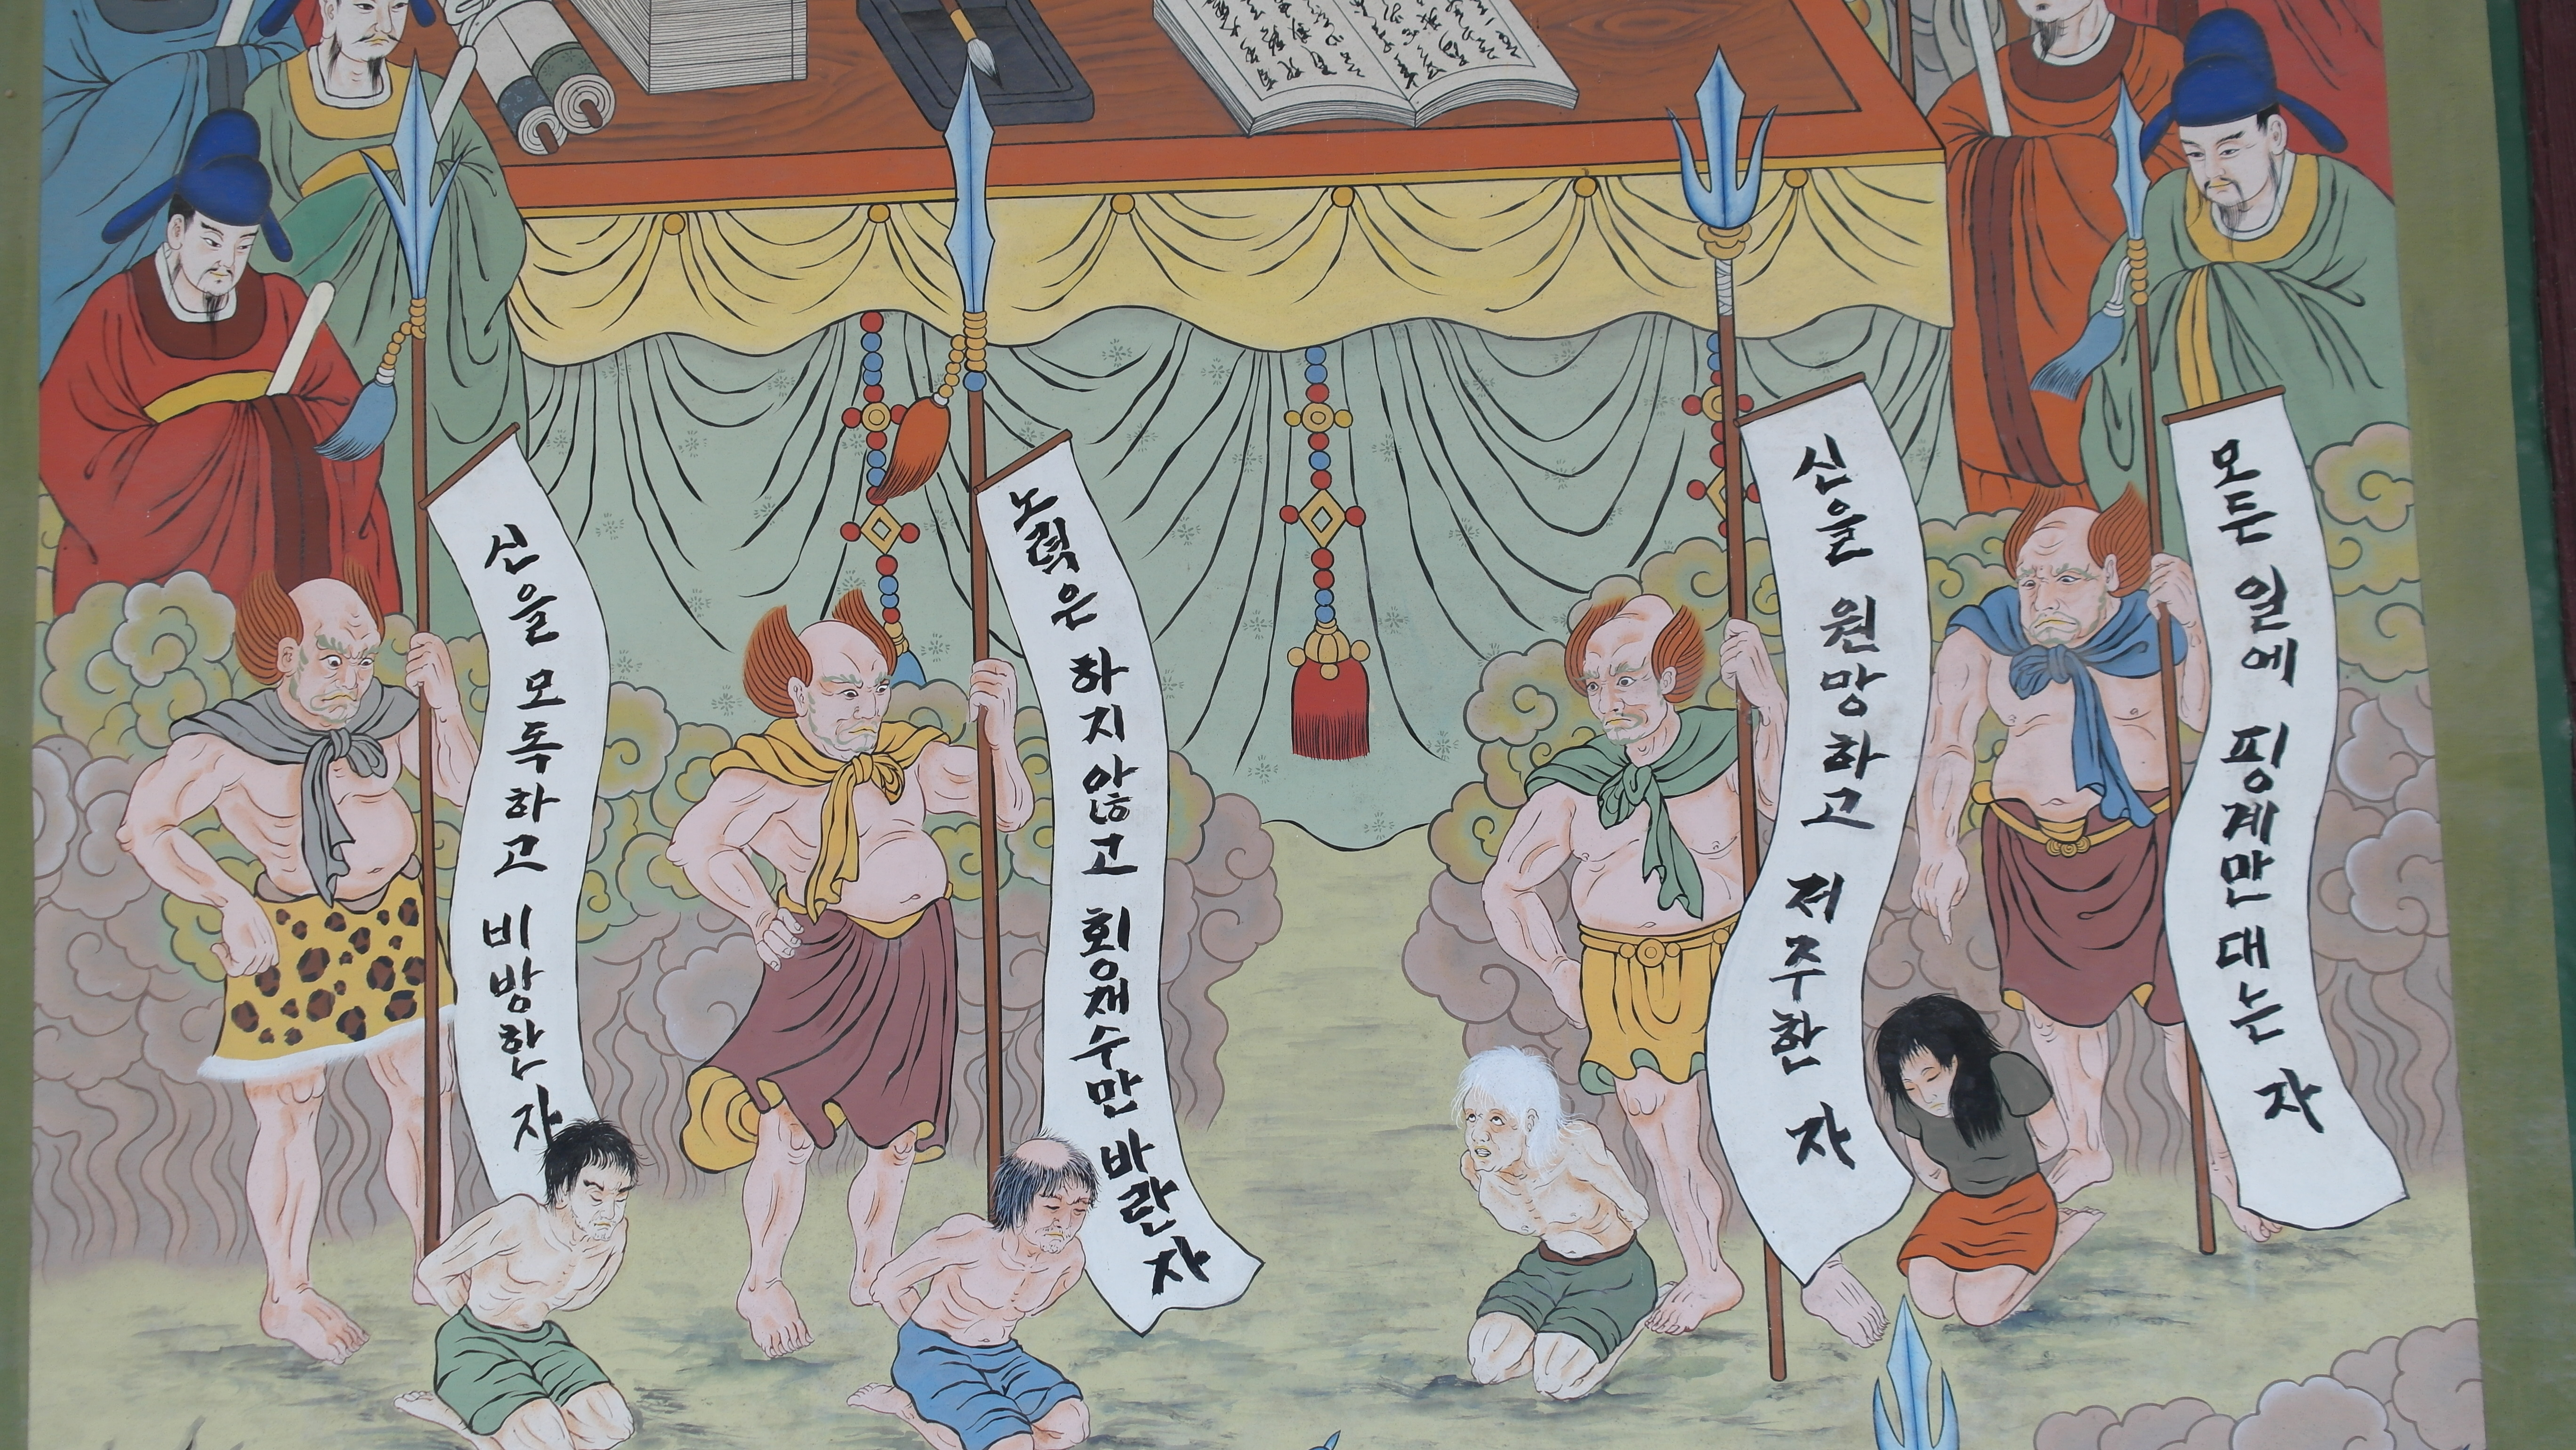 신을 모독하고 비방한 자
노력은 하지 않고 횡재수만 바란 자
신을 원망하고 저주한 자
모든 일에 핑계만 대는 자